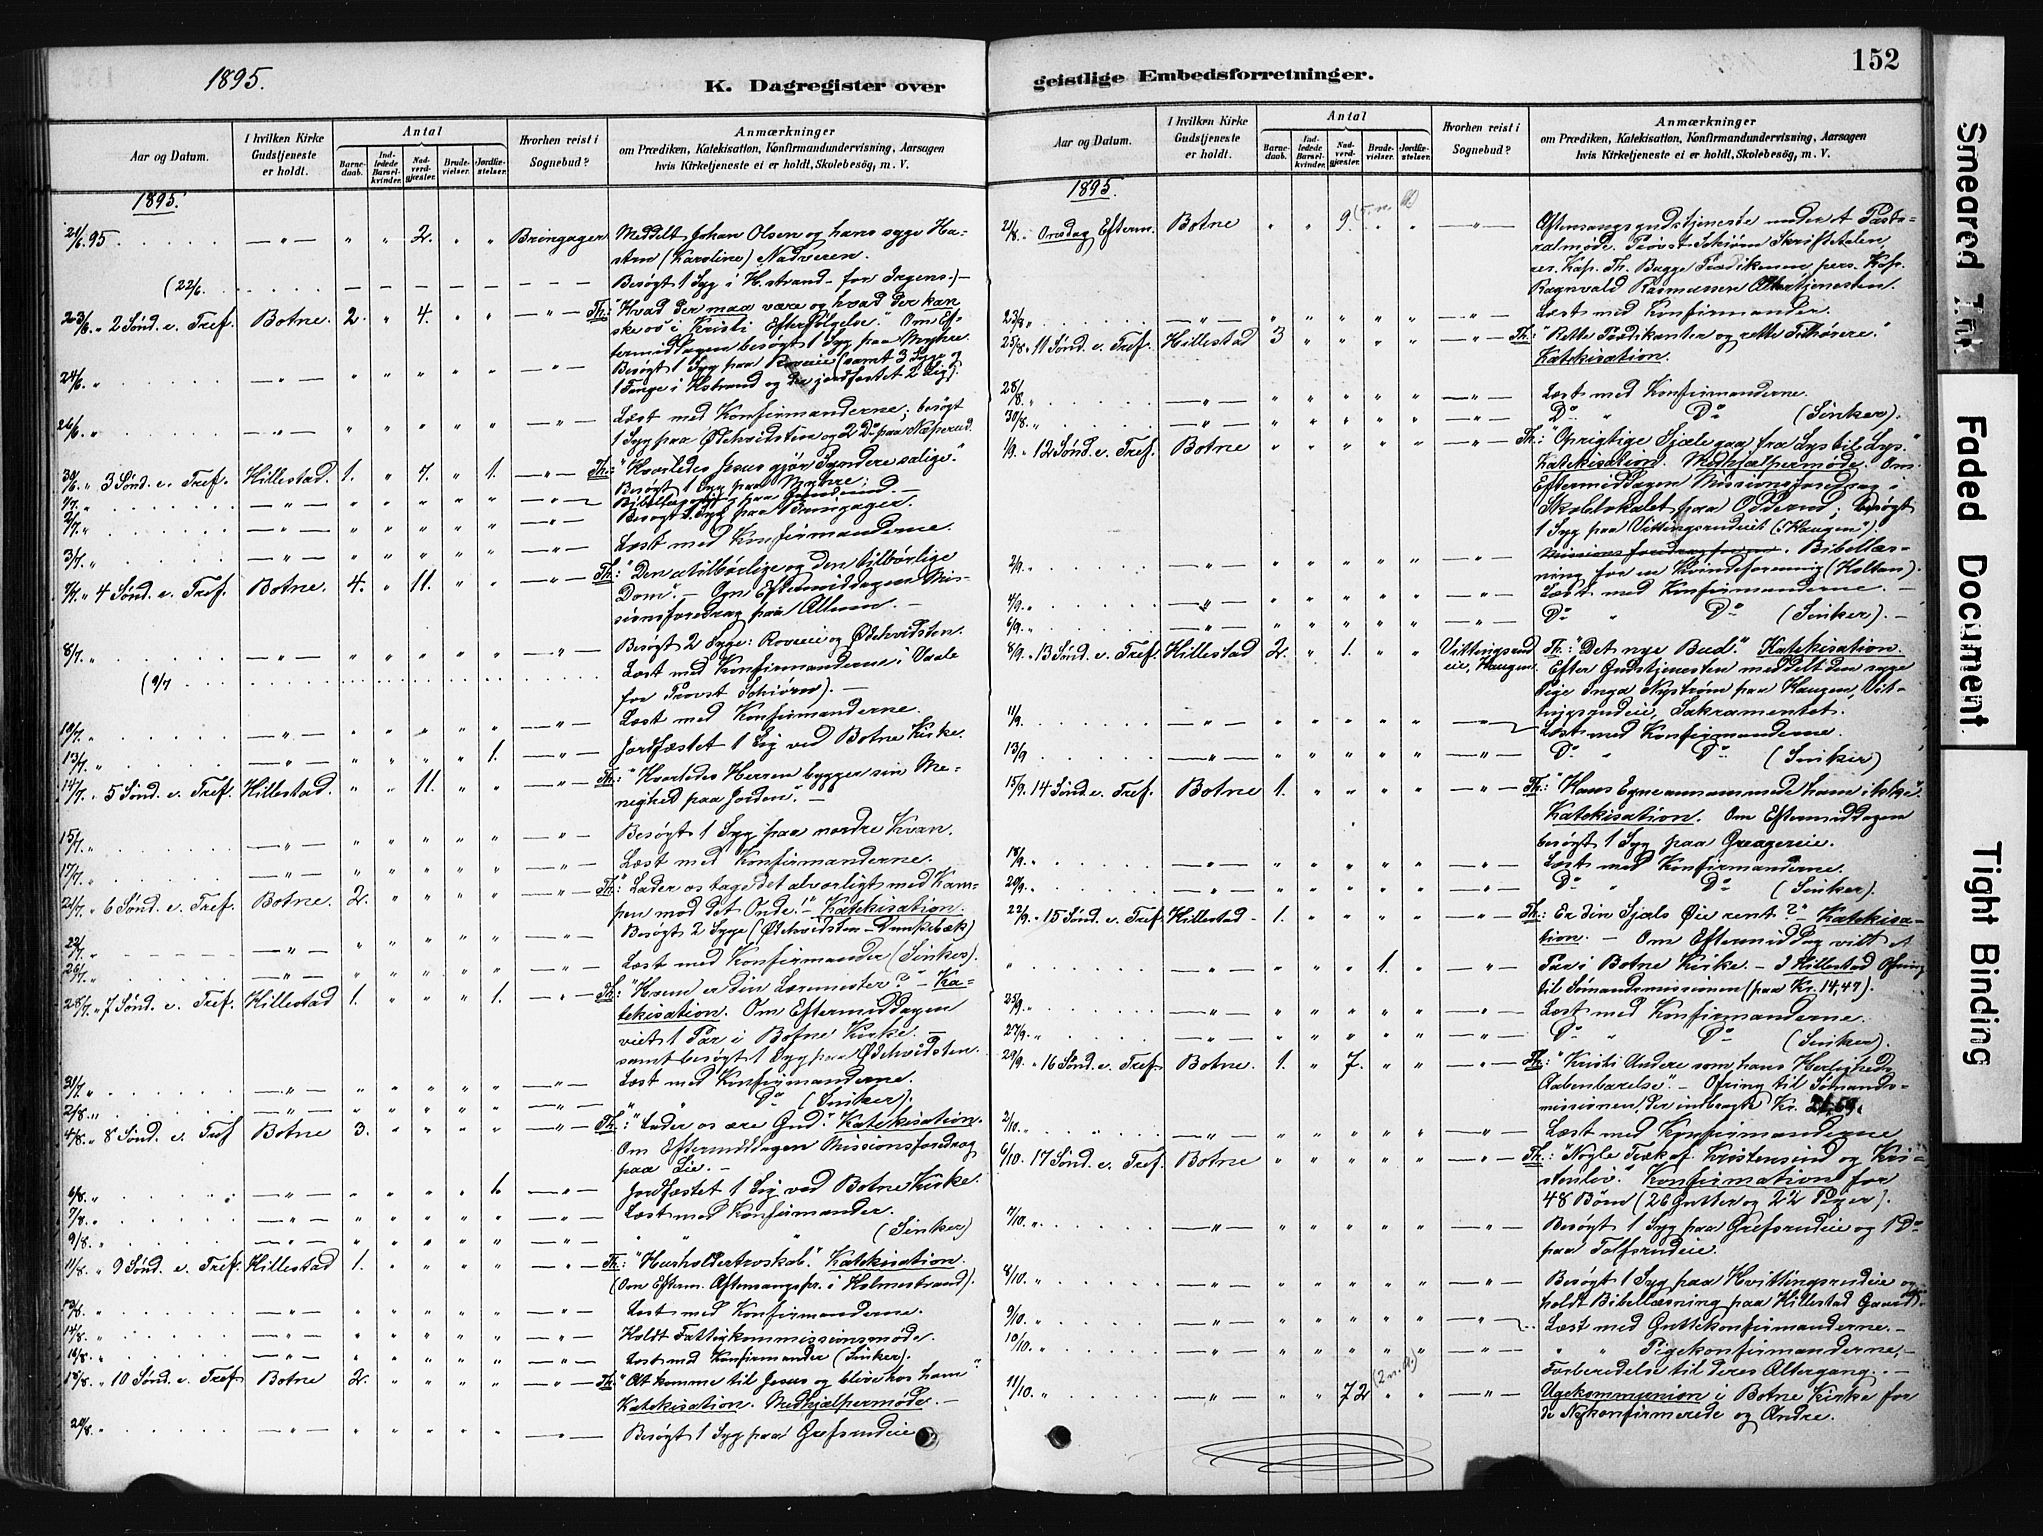 152
1895.
K. Dagregister over geistlige Embedsforretninger.
Aar og Datum.
I hvilken Kirke Gudstjeneste er holdt.
Antal
Barnedaab.
Indledede Barselkvinder.
Nadverdgjæster.
Brudevielser.
Jordfæstelser.
Hvorhen reist i Sognebud?
Anmærkninger
om Prædiken, Katekisation, Konfirmandundervisning, Aarsagen
hvis Kirketjeneste ei er holdt, Skolebesøg, m. V.
1895.
21/6 95. — " — " " 2. " " Bringager Meddelt Johan Olsen og hans syge Hu-
stru (Karoline) Nadveren.
(22/6. Besøgt 1 Syg i H.strand for Irgens.) —
23/6 " 2 Sønd. e. Tref. Botne. 2. " 4. " " — " — Th: "Hvad der maa være og hvad der kan
ske os i Kristi Efterfølgelse." Om Ef-
termiddagen besøgt 1 Syg paa Myhre.
24/6. " — " — Besøgt 1 Syg paa Roveie (samt 3 Syge og
1 Fange i Hstrand og der jordfæstet 2 Lig).
26/6. " — " — Læst med Konfirmanderne; besøgt
1 Syg paa Ødekvidsten og 2 Do paa Næperud.
30/6. " 3 Sønd. e. Tref. Hillestad. 1. " 4. " 1. — " — Th: "Hvorledes Jesus gjør Syndere salige."
Besøgt 1 Syg paa Myhre;
Besøgt 1 Syg paa Bringager.
3/7. " — " — Læst med Konfirmanderne.
7/7. " 4 Sønd. e. Tref. Botne. 4. " 11. " " — " — Th: "Den utilbørlige og den tilbørlige
Dom." — Om Eftermiddagen Mis-
sionsforedrag paa Allum. —
8/7. " — " — Besøgt 2 Syge: Roveie og Ødekvidsten.
(9/7 Læst med Konfirmanderne i Vaale
for Provst Schiørn). —
10/7. " — " — Læst med Konfirmanderne.
13/7. " 1. — " — Jordfæstet 1 Lig ved Botne Kirke.
14/7. " 5 Sønd. e. Tref. Hillestad. " " 11. " " — " — Th: "Hvorledes Herren bygger sin Me-
nighed paa Jorden." —
15/7. " — " — Besøgt 1 Syg paa nordre Kvan.
17/7. " — " — Læst med Konfirmanderne.
21/7. " 6 Sønd. e. Tref. Botne. 2. — " — Th: "Lader os tage det alvorligt med Kam-
pen mod det Onde!" — Katekisation.
22/7. " — " — Besøgt 2 Syge (Ødekvidsten — Dunkebæk)
26/7. " — " — Læst med Konfirmander (Sinker).
28/7. " 7 Sønd. e. Tref. Hillestad 1. " " " 1. — " — Th: "Hvem er din Læremester?" — Ka-
tekisation. Om Eftermiddagen
viet 1 Par i Botne Kirke —
samt besøgt 1 Syg paa Ødekvidsten.
31/7. " — " — Læst med Konfirmanderne.
2/8. " — " — " " Do (Sinker).
4/8. " 8 Sønd. e. Tref Botne 3. — " — Th: "Lader os ære Gud." Katekisation.
Om Eftermiddagen Missionsforedrag
paa Lie. —
6/8. " — " — Jordfæstet 1 Lig ved Botne Kirke.
7/8. " — " — Læst med Konfirmander.
9/8. " — " — " " (Sinker)
11/8. " 9 Sønd. e. Tref. Hillestad 1. — " — Th: "Husholdertroskab." Katekisation.
(Om Efterm. Aftensangspr. i Holmestrand).
13/8. " — " — Læst med Konfirmanderne.
14/8. " — " — Holdt Fattigkommissionsmøde.
16/8. " — " — Læst med Konfirmander (Sinker).
18/8. " 10 Sønd. e. Tref Botne 2. — " — Th: "At komme til Jesus og blive hos ham"
Katekisation. Medhjælpermøde. —
20/8. " — " — Besøgt 1 Syg paa Grefsrudeie
Aar og Datum.
I hvilken Kirke Gudstjeneste er holdt.
Antal
Barnedaab.
Indledede Barselkvinder.
Nadverdgjæster.
Brudevielser.
Jordfæstelser.
Hvorhen reist i Sognebud?
Anmærkninger
om Prædiken, Katekisation, Konfirmandundervisning, Aarsagen
hvis Kirketjeneste ei er holdt, Skolebesøg, m. V.
1895.
21/8. Onsdag Efterm. Botne " " 9. " " — " — Aftensangsgudstjeneste under et Pasto-
ralmøde. Provst Schiørn Skriftetalen,
res. Kap. Th. Bugge Prædikenen, pers. Kap.
Ragnvald Rasmussen Altertjenesten.
23/8 " — " — Læst med Konfirmander.
25/8. 11 Sønd. e. Tref. Hillestad 3 — " — Th: "Rette Prædikanter og rette Tilhørere."
Katekisation.
28/8. " — " — Læst med Konfirmanderne.
30/8. " — " — Do " Do (Sinker).
1/9. 12 Sønd. e. Tref. Botne — " — Th: "Oprigtige Sjæle gaa fra Lys til Lys."
Katekisation. Medhjælpermøde. Om
Eftermiddagen Missionsforedrag i
Skolelokalet paa Odderud; besøgt
1 Syg paa Vittingsrudeiet (Haugen").
2/9. — " — Bibellæs-
ning for en Kvindeforening (Holtan).
4/9. — " — Læst med Konfirmanderne. —
6/9. " Do " Do (Sinker). —
8/9. " 13 Sønd. e. Tref. Hillestad 2. " 1. " " Vittingsrud
eie, Haugen. Th: "Det nye Bud." Katekisation.
Efter Gudstjenesten meddelt den syge
Pige Inga Nystrøm paa Haugen, Vit-
tingsrudeie, Sakramentet.
11/9. — " — Læst med Konfirmanderne.
13/9 — " — Do " Do (Sinker)
15/9. 14 Sønd. e. Tref. Botne 1. — " — Th: "Hans Egne annammede ham ikke."
Katekisation. Om Eftermiddagen
besøgt 1 Syg paa Graagereie.
18/9. " — " — Læst med Konfirmanderne.
20/9. " — " — Do " Do (Sinker).
22/9. " 15 Sønd. e. Tref Hillestad 1. — " — Th: Er din Sjæls Øie rent?" — Katekisa-
tion. — Om Eftermiddag viet et
" — " — 1. " — " — Par i Botne Kirke. — I Hillestad Ofring
til Sømandsmissionen (paa Kr. 14,47).
25/9. " — " — Læst med Konfirmanderne.
27/9. " — " — Do " Do (Sinker).
29/9. " 16 Sønd. e. Tref Botne. 1. " 7. " " — " — Th: "Kristi Undere som hans Herligheds
Aabenbarelse". — Ofring til Sømands-
missionen, der indbragte Kr.
2/10. " — " — Læst med Konfirmanderne
6/10. 17 Sønd. e. Tref. Botne — " — Th: "Nogle Træk af Kristensind og Kri-
stenliv." Konfirmation for
48 Børn (26 Gutter og 22 Piger).
7/10. " — " — Besøgt 1 Syg paa Grefsrudeie og 1 Do
paa Tolfsrudeie.
8/10. " — " — Besøgt 1 Syg paa Hvittingsrudeie og
holdt Bibellæsning paa Hillestad Gaard.
9/10. " — " — Læst med Guttekonfirmanderne. —
10/10. " — " — " " Pigekonfirmanderne, —
Forberedelse til deres Altergang. —
11/10. " — " — 72 " " — " — Ugekommunion i Botne Kirke for
de Nykonfirmerede og Andre.
Smeared Ink
Faded Document
Tight Binding